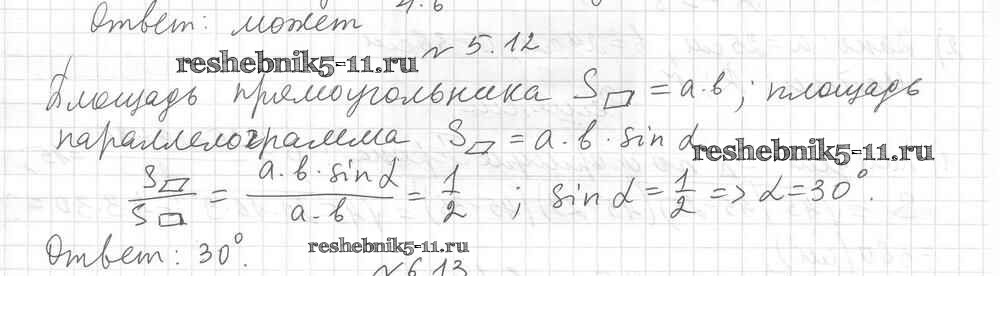 Ответ: может
№ 5.12
reshebnik5-11.ru
Площадь прямоугольника S▭ = a·b; площадь
параллелограмма S▱ = a·b·sin α
reshebnik5-11.ru
S▱/S▭ = a·b·sin α / a·b = 1/2 ; sin α = 1/2 => α = 30°.
Ответ: 30°.
reshebnik5-11.ru
№ 6.13